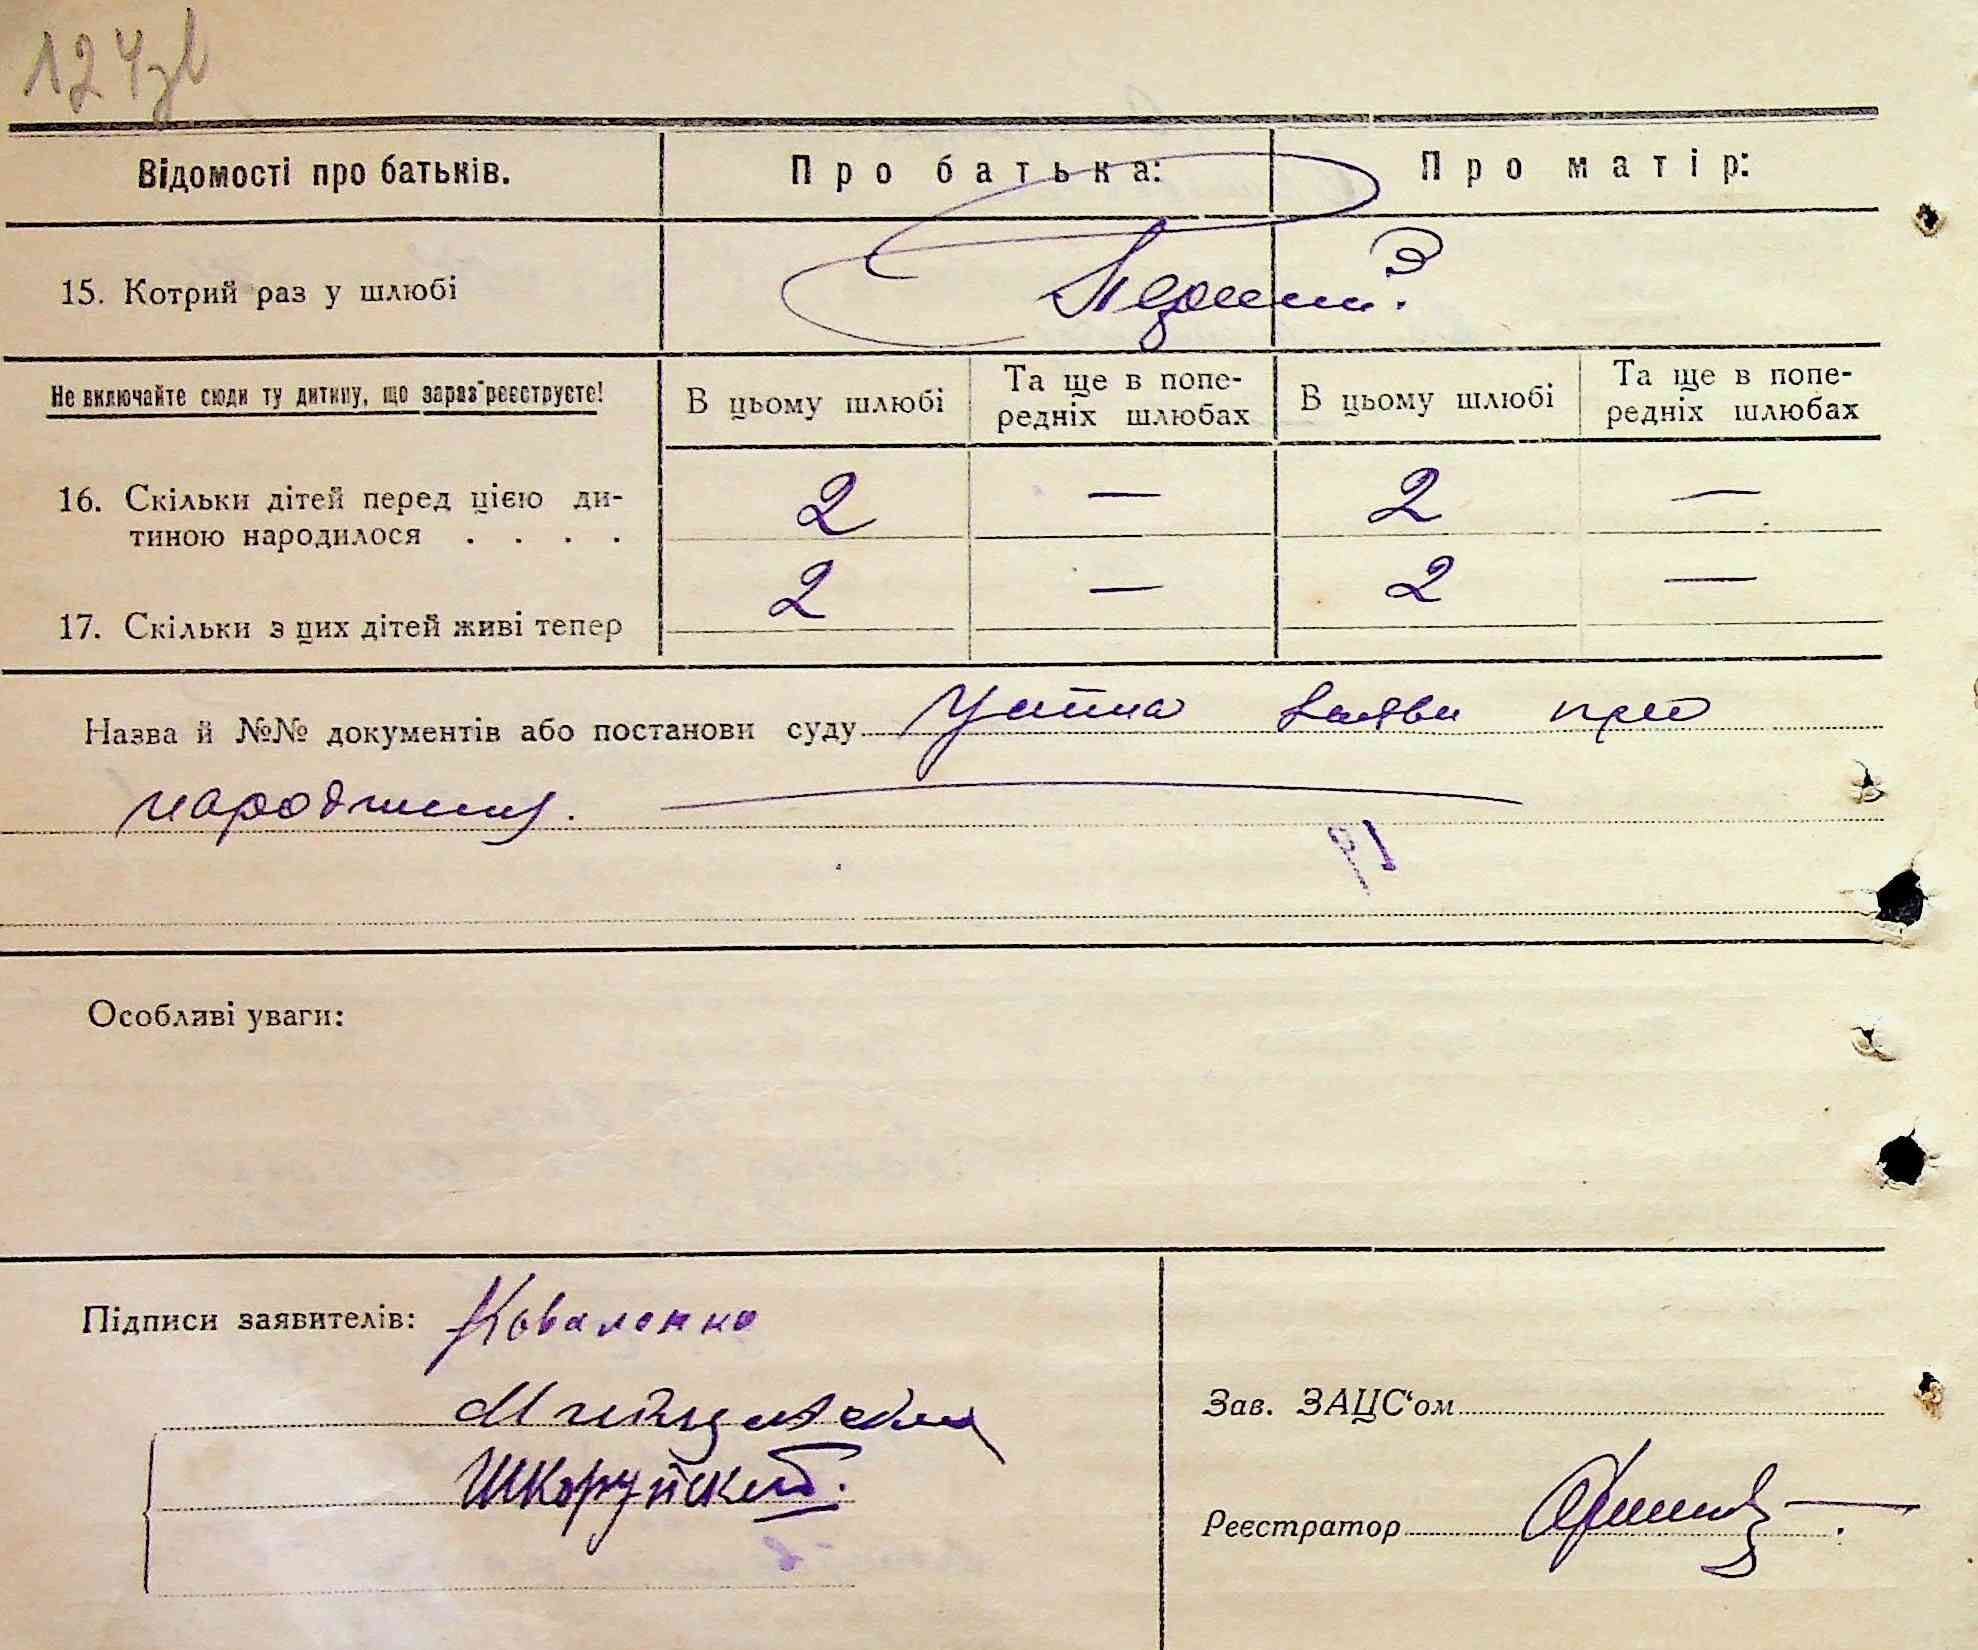 124зв
Відомості про батьків. Про батька: Про матір:
15. Котрий раз у шлюбі
Не включайте сюди ту дитину, що зараз реєструєте! В цьому шлюбі Та ще в попе-
редніх шлюбах В цьому шлюбі Та ще в попе-
редніх шлюбах
16. Скільки дітей перед цією ди-
тиною народилося . . . . 2 — 2 —
17. Скільки з цих дітей живі тепер 2 — 2 —
Назва й №№ документів або постанови суду Устна заява про
народження.
Особливі уваги:
Підписи заявителів: Коваленко
Шкоруйский.
Зав. ЗАЦС'ом
Реєстратор